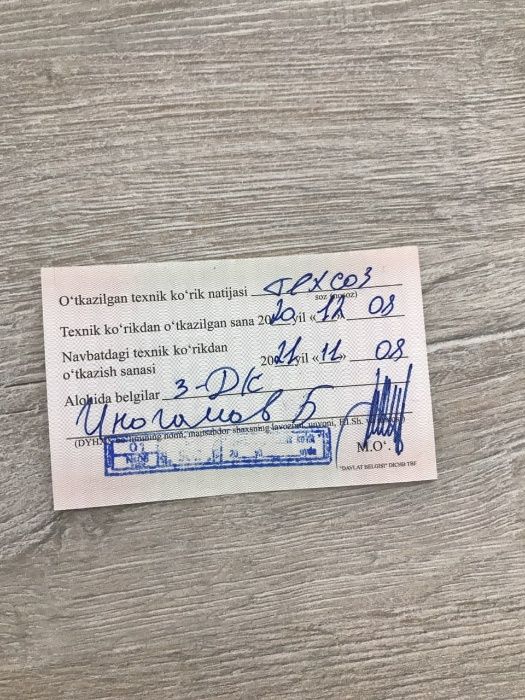 O‘tkazilgan texnik ko‘rik natijasi техсоз
soz (nosoz)
Texnik ko‘rikdan o‘tkazilgan sana 2020 yil «12» 08
Navbatdagi texnik ko‘rikdan
o‘tkazish sanasi 2021 yil «11» 08
Alohida belgilar 3-ДК
Иногамов Б
nomi, mansabdor shaxsning lavozimi, unvoni, F.I.Sh.
M.O‘.
"DAVLAT BELGISI" DICHB TBF